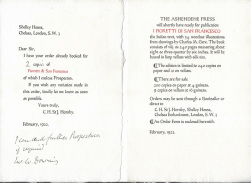 Shelley House,
Chelsea, London, S.W. 3
Dear Sir,
I have your order already booked for
2 copies of
Fioretti di San Francesco
of which I enclose Prospectus.
If you wish any variation made in
this order, kindly let me know as soon
as possible.
Yours truly,
C.H. St J. Hornby.
February, 1922.
I can send further Prospectuses
if required
THE ASHENDENE PRESS
will shortly have ready for publication
I FIORETTI DI SAN FRANCESCO
the Italian text, with 54 woodcut illustrations
from drawings by Charles M. Gere. The book
consists of 240 pages measuring about
eight as three-quarter by six inches. It will be
bound in limp vellum with silk ties.
The edition is limited to 240 copies on
paper and 12 on vellum.
There are for sale
200 copies on paper at 4 guineas.
9 copies on vellum at 25 guineas.
Orders may be sent through a Bookseller or
direct to
C. H. St J. Hornby, Shelley House,
Chelsea Embankment, London, S.W. 3
An Order Form is enclosed herewith.
February, 1922.